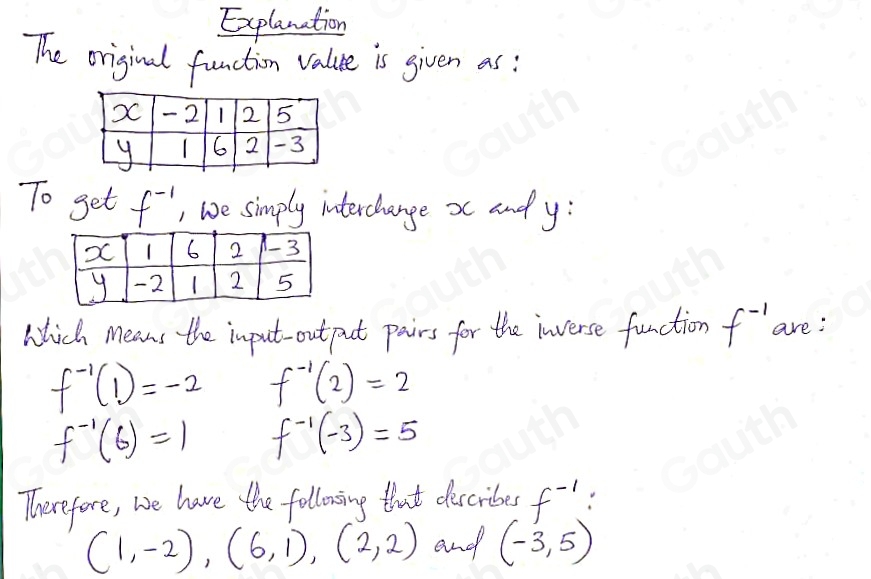 Explanation
The original function value is given as:
x -2 1 2 5
y 1 6 2 -3
To get f⁻¹, we simply interchange x and y:
x 1 6 2 -3
y -2 1 2 5
Which means the input-output pairs for the inverse function f⁻¹ are:
f⁻¹(1) = -2 f⁻¹(2) = 2
f⁻¹(6) = 1 f⁻¹(-3) = 5
Therefore, we have the following that describes f⁻¹:
(1,-2), (6,1), (2,2) and (-3,5)
Gauth